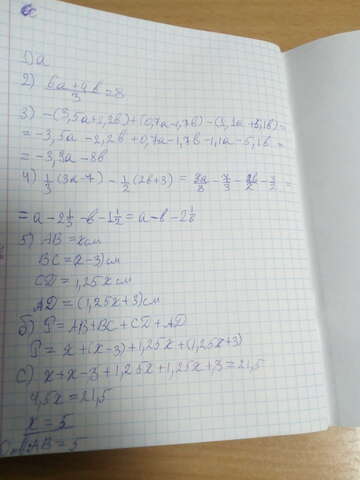 1) a
2) (6a+4b)/3 = 8
3) -(3,5a+2,2b)+(0,7a-1,7b)-(1,1a+5,1b)=
= -3,5a-2,2b+0,7a-1,7b-1,1a-5,1b=
= -3,9a-8b
4) 1/3 (3a-7) - 1/2 (2b+3) = 3a/3 - 7/3 - 2b/2 - 3/2 =
= a - 2 1/3 - b - 1 1/2 = a - b - 2 1/6
5) AB = x см
BC = (x-3) см
CD = 1,25x см
AD = (1,25x+3) см
б) P = AB+BC+CD+AD
P = x+(x-3)+1,25x+(1,25x+3)
c) x+x-3+1,25x+1,25x+3=21,5
4,5x=21,5
x = 5
AB = 5